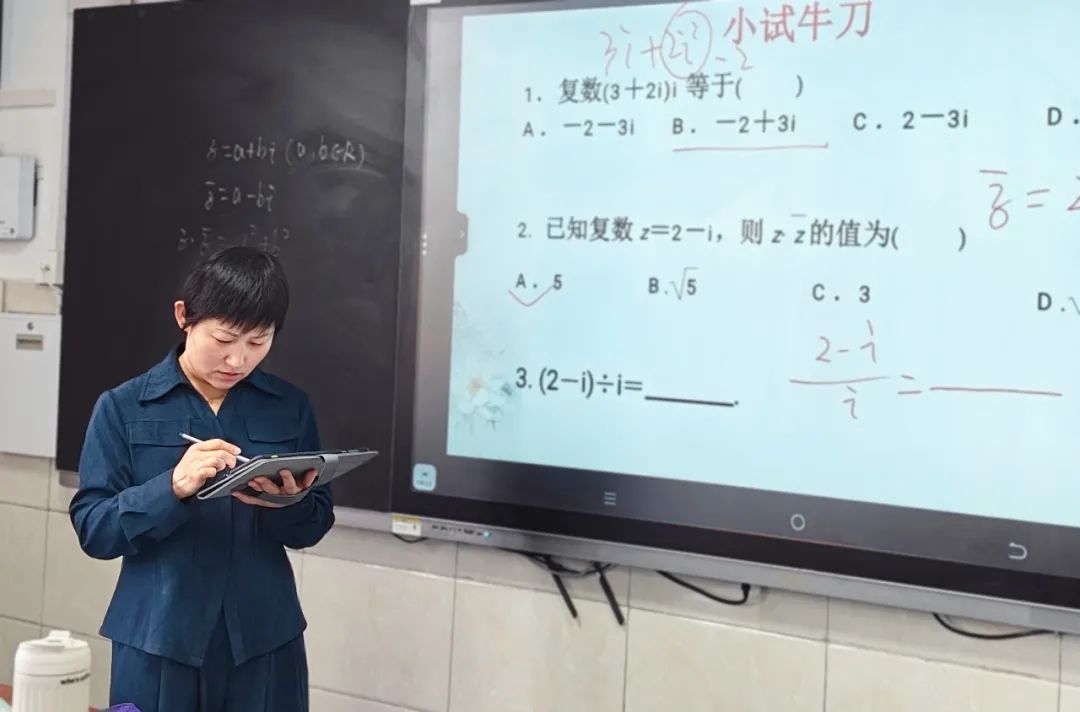 z=a+bi (a,b∈R)
z̄=a-bi
小试牛刀
3i+2i²
-2
1. 复数(3+2i)i 等于( )
A. -2-3i B. -2+3i C. 2-3i D.
z̄ =
2. 已知复数 z=2-i，则 z·z̄的值为( )
A. 5 B.√5 C. 3 D.√
2-i
i =
3. (2-i)÷i=______.